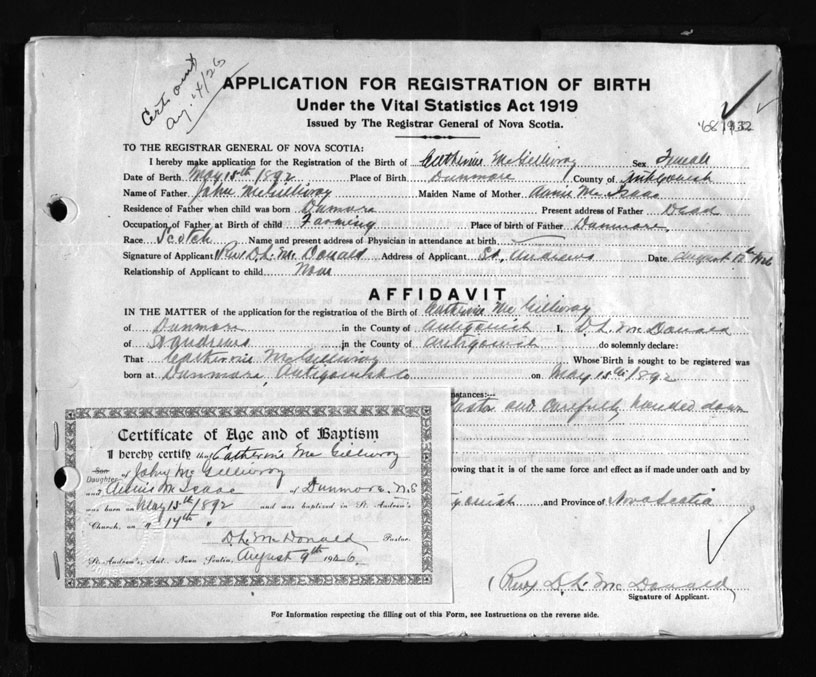 Cert sent
Aug. 14/26
APPLICATION FOR REGISTRATION OF BIRTH
Under the Vital Statistics Act 1919
Issued by The Registrar General of Nova Scotia.
TO THE REGISTRAR GENERAL OF NOVA SCOTIA:
I hereby make application for the Registration of the Birth of Catherine McGillivray Sex Female
Date of Berth May 15th 1892 Place of Birth Dunmore County of Antigonish
Name of Father John McGillivray Maiden Name of Mother Annie McIsaac
Residence of Father when child was born Dunmore Present address of Father Dead
Occupation of Father at Birth of child Farming Place of birth of Father Dunmore
Race Scotch Name and present address of Physician in attendance at birth
Signature of Applicant Rev. D. L. McDonald Address of Applicant St. Andrews Date August
Relationship of Applicant to child None
AFFIDAVIT
IN THE MATTER of the application for the registration of the Birth of Catherine McGillivray
of Dunmore in the County of Antigonish I, D. L. McDonald
of St Andrews in the County of Antigonish do solemnly declare:
That Catherine McGillivray Whose Birth is sought to be registered was
born at Dunmore, Antigonish Co on May 15th 1892
stances:—
and carefully handed down
owing that it is of the same force and effect as if made under oath and by
igonish and Province of Nova Scotia
(Rev) D. L. McDonald
Signature of Applicant.
Certificate of Age and of Baptism
I hereby certify that Catherine McGillivray
Son
Daughter of John McGillivray
and Annie McIsaac of Dunmore, N.S
was born on May 15th 1892 and was baptized in St. Andrew's
Church, on " 17th "
D. L. McDonald Pastor.
St. Andrew's, Ant., Nova Scotia, August 9th 1926.
For Information respecting the filling out of this Form, see Instructions on the reverse side.